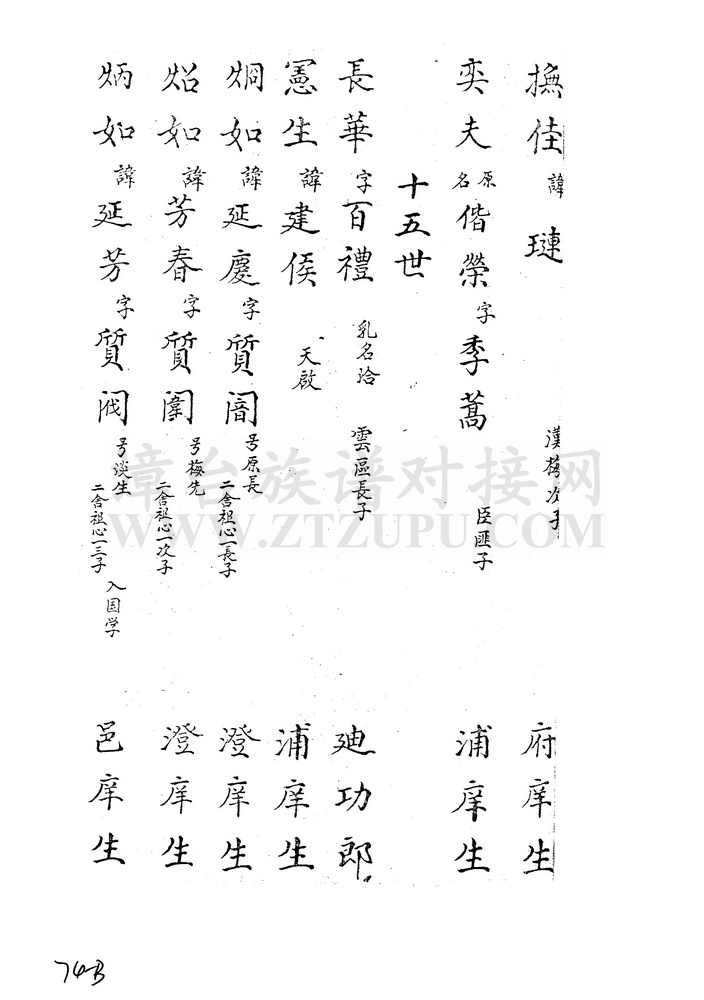 撫佳 諱 璉 漢梅次子 府庠生
奕夫 原名 偕榮 字 季蒿 臣匪子 浦庠生
十五世
長華 字 百禮 乳名洽 雲區長子 廸功郎
憲生 諱 建侯 天啟 浦庠生
炯如 諱 延慶 字 質闇 号原長 二舍祖心一長子 澄庠生
炤如 諱 芳春 字 質闈 号梅先 二舍祖心一次子 澄庠生
炳如 諱 延芳 字 質閥 号淡生 二舍祖心一三子 入国学 邑庠生
漳台族谱对接网
WWW.ZTZUPU.COM
74B